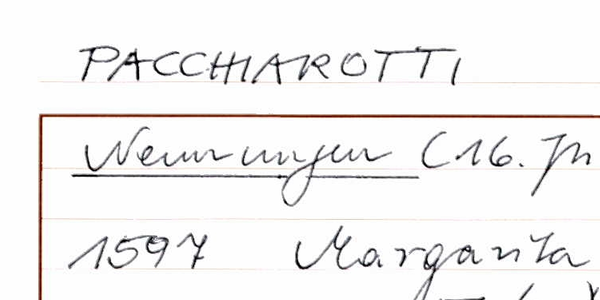 PACCHIAROTTI
Nennungen (16. Jh
1597 Margarita